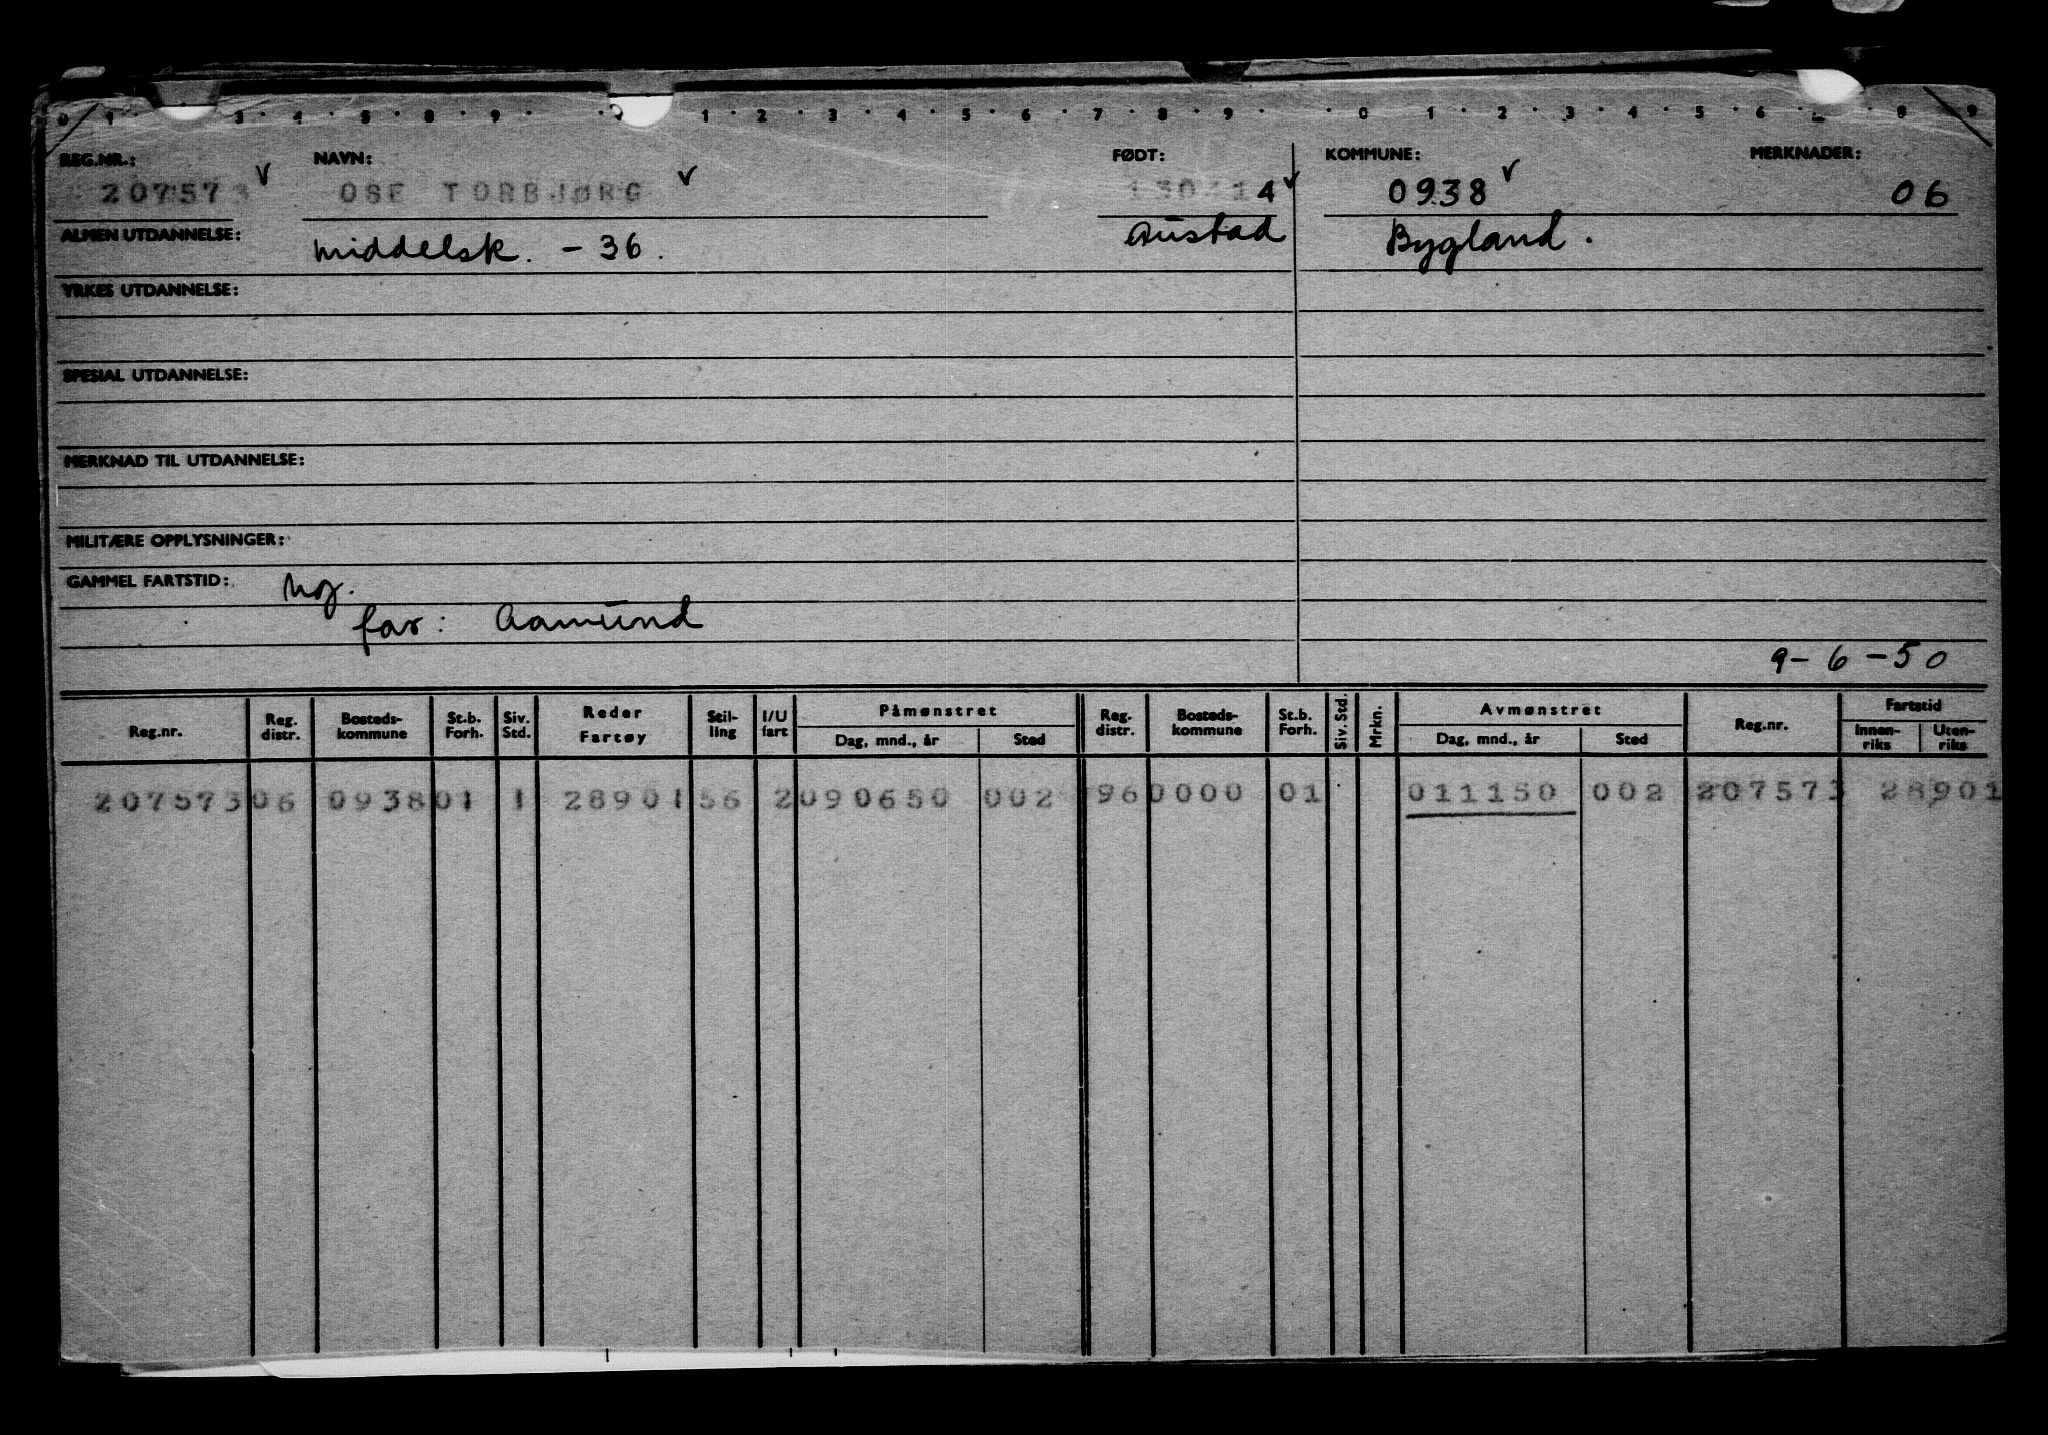 0 1 3 4 5 8 9 0 1 2 3 4 5 6 7 8 9 0 1 2 3 4 5 6 8 9
REG.NR.: NAVN: FØDT: KOMMUNE: MERKNADER:
207573 OSE TORBJØRG 4 0938 06
ALMEN UTDANNELSE: middelsk. - 36. Austad Bygland.
YRKES UTDANNELSE:
SPESIAL UTDANNELSE:
MERKNAD TIL UTDANNELSE:
MILITÆRE OPPLYSNINGER:
GAMMEL FARTSTID: Ng.
far: Aamund
9-6-50
Reg.nr. Reg. distr. Bosteds-kommune St.b. Forh. Siv. Std. Reder Fartøy Stil-ling I/U fart Påmønstret Dag, mnd., år Sted Reg. distr. Bosteds-kommune St.b. Forh. Siv. Std. Mrkn. Avmønstret Dag, mnd., år Sted Reg.nr. Fartstid Innen-riks Uten-riks
207573 06 0938 01 1 28901 56 2 090650 002 96 0000 01 011150 002 207573 28901